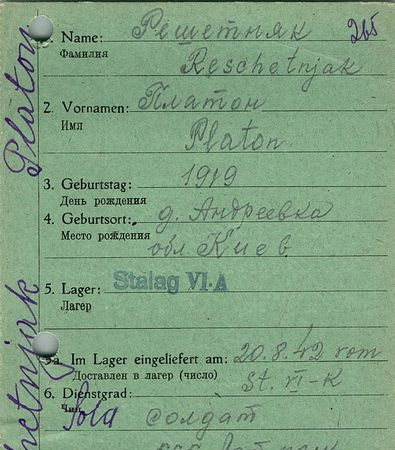 1. Name: Решетняк 265
Фамилия Reschetnjak
2. Vornamen: Платон
Имя Platon
3. Geburtstag: 1919
День рождения
4. Geburtsort: д. Андреевка
Место рождения обл Киев
5. Lager: Stalag VI-A
Лагер
5a. Im Lager eingeliefert am: 20.8.42 vom
Доставлен в лагер (число) St. VI-K
6. Dienstgrad:
Чин Sold солдат
Platon